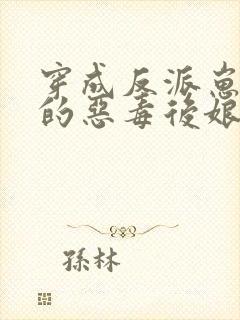 穿成反派崽
的惡毒後娘
孫林